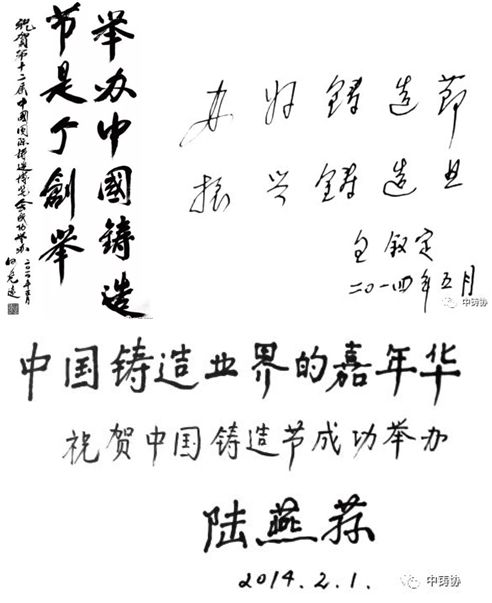 举办中國铸造
节是个創举
祝贺第十二届中國国际铸造博览会成功举办
何光远
办好铸造節
振兴铸造业
包叙定
二〇一四年五月
中铸协
中国铸造业界的嘉年华
祝贺中国铸造节成功举办
陆燕荪
2014.2.1.
中铸协